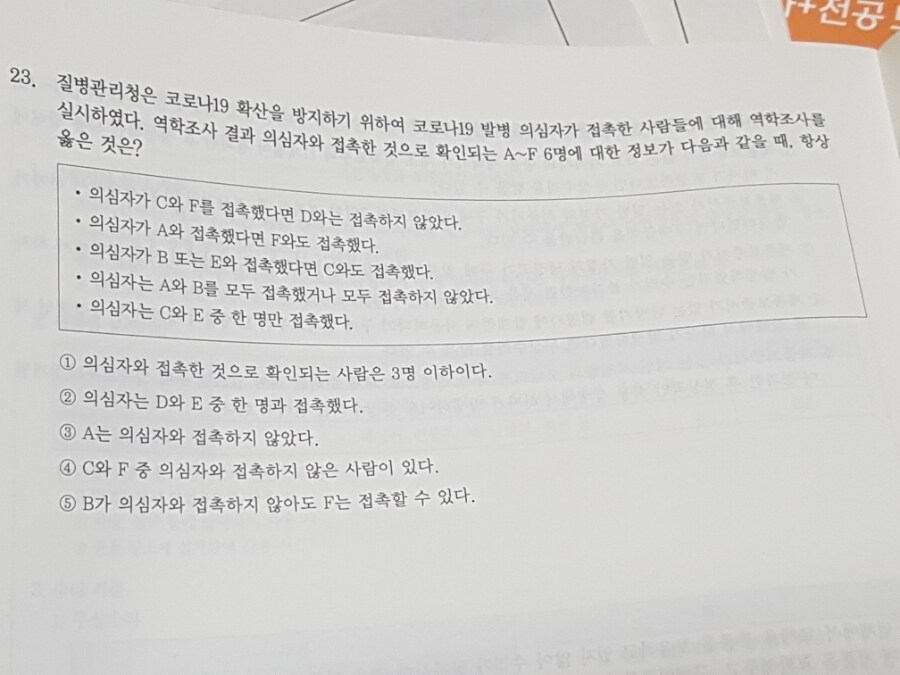 +전공
23. 질병관리청은 코로나19 확산을 방지하기 위하여 코로나19 발병 의심자가 접촉한 사람들에 대해 역학조사를
실시하였다. 역학조사 결과 의심자와 접촉한 것으로 확인되는 A~F 6명에 대한 정보가 다음과 같을 때, 항상
옳은 것은?
• 의심자가 C와 F를 접촉했다면 D와는 접촉하지 않았다.
• 의심자가 A와 접촉했다면 F와도 접촉했다.
• 의심자가 B 또는 E와 접촉했다면 C와도 접촉했다.
• 의심자는 A와 B를 모두 접촉했거나 모두 접촉하지 않았다.
• 의심자는 C와 E 중 한 명만 접촉했다.
① 의심자와 접촉한 것으로 확인되는 사람은 3명 이하이다.
② 의심자는 D와 E 중 한 명과 접촉했다.
③ A는 의심자와 접촉하지 않았다.
④ C와 F 중 의심자와 접촉하지 않은 사람이 있다.
⑤ B가 의심자와 접촉하지 않아도 F는 접촉할 수 있다.